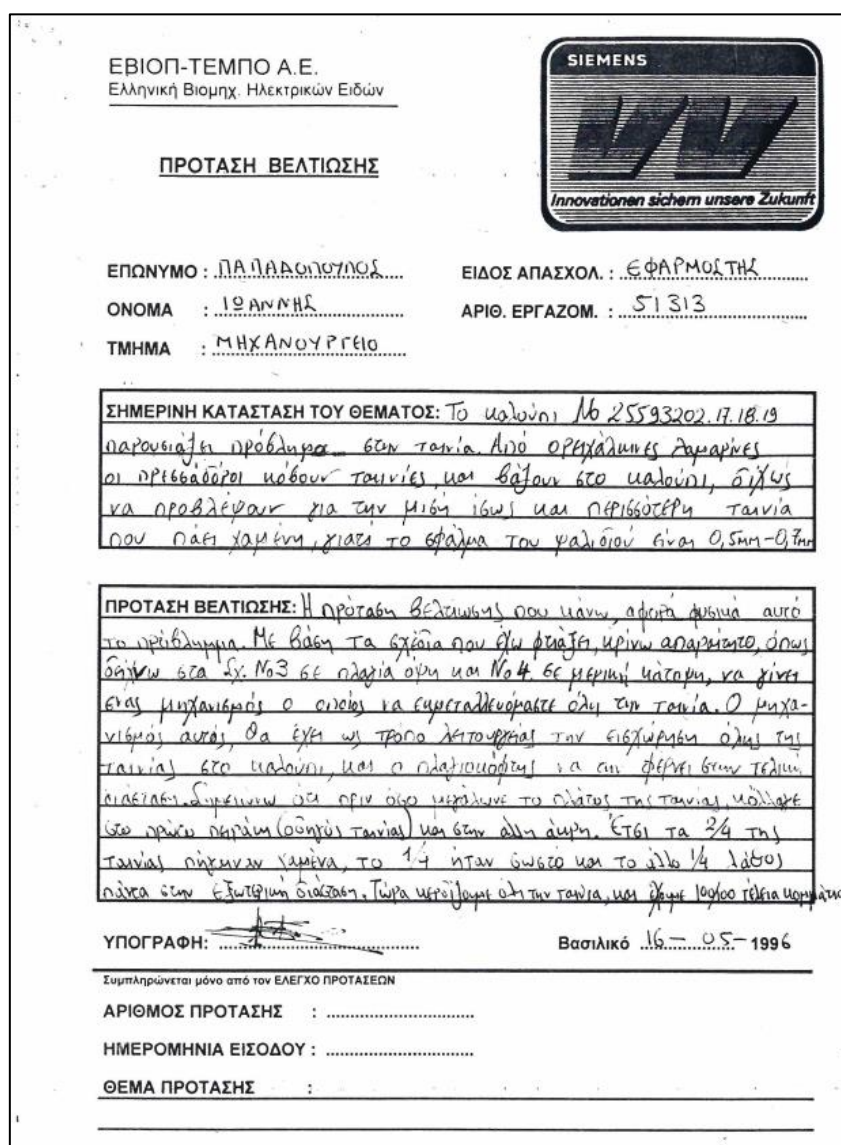 ΕΒΙΟΠ-ΤΕΜΠΟ Α.Ε.
Ελληνική Βιομηχ. Ηλεκτρικών Ειδών
SIEMENS
Innovationen sichern unsere Zukunft
ΠΡΟΤΑΣΗ ΒΕΛΤΙΩΣΗΣ
ΕΠΩΝΥΜΟ : ΠΑΠΑΔΟΠΟΥΛΟΣ
ΕΙΔΟΣ ΑΠΑΣΧΟΛ. : ΕΦΑΡΜΟΣΤΗΣ
ΟΝΟΜΑ : ΙΩΑΝΝΗΣ
ΑΡΙΘ. ΕΡΓΑΖΟΜ. : 51313
ΤΜΗΜΑ : ΜΗΧΑΝΟΥΡΓΕΙΟ
ΣΗΜΕΡΙΝΗ ΚΑΤΑΣΤΑΣΗ ΤΟΥ ΘΕΜΑΤΟΣ: Το καλούπι No 25593202.17.18.19
παρουσιάζει πρόβλημα στην ταινία. Από ορειχάλκινες λαμαρίνες
οι πρεσσαδόροι κόβουν ταινίες, και βάζουν στο καλούπι, δίχως
να προβλέψουν για την μισή ίσως και περισσότερη ταινία
που πάει χαμένη, γιατί το σφάλμα του ψαλιδιού είναι 0,5mm-0,7mm
ΠΡΟΤΑΣΗ ΒΕΛΤΙΩΣΗΣ: Η πρόταση βελτίωσης που κάνω, αφορά φυσικά αυτό
το πρόβλημμα. Με βάση τα σχέδια που έχω φτιάξει, κρίνω απαραίτητο, όπως
δείχνω στα Σχ. No3 σε πλαγία όψη και No4 σε μερική κάτοψη, να γίνει
ένας μηχανισμός ο οποίος να εκμεταλλευόμαστε όλη την ταινία. Ο μηχα-
νισμός αυτός, θα έχει ως τρόπο λειτουργείας την εισχώρηση όλης της
ταινίας στο καλούπι, και ο πλαγιοκόφτης να την φέρνει στην τελική
διάσταση. Σημειώνω ότι πριν όσο μεγάλωνε το πλάτος της ταινίας, κόλλαγε
στο πρώτο πειράκι (οδηγός ταινίας) και στην άλλη άκρη. Έτσι τα 2/4 της
ταινίας πήγαιναν χαμένα, το 1/4 ήταν σωστό και το άλλο 1/4 λάθος
πάντα στην εξωτερική διάσταση. Τώρα κερδίζουμε όλη την ταινία, και έχουμε 100/00 τέλεια κομμάτια
ΥΠΟΓΡΑΦΗ:
Βασιλικό 16 - 05 - 1996
Συμπληρώνεται μόνο από τον ΕΛΕΓΧΟ ΠΡΟΤΑΣΕΩΝ
ΑΡΙΘΜΟΣ ΠΡΟΤΑΣΗΣ :
ΗΜΕΡΟΜΗΝΙΑ ΕΙΣΟΔΟΥ :
ΘΕΜΑ ΠΡΟΤΑΣΗΣ :